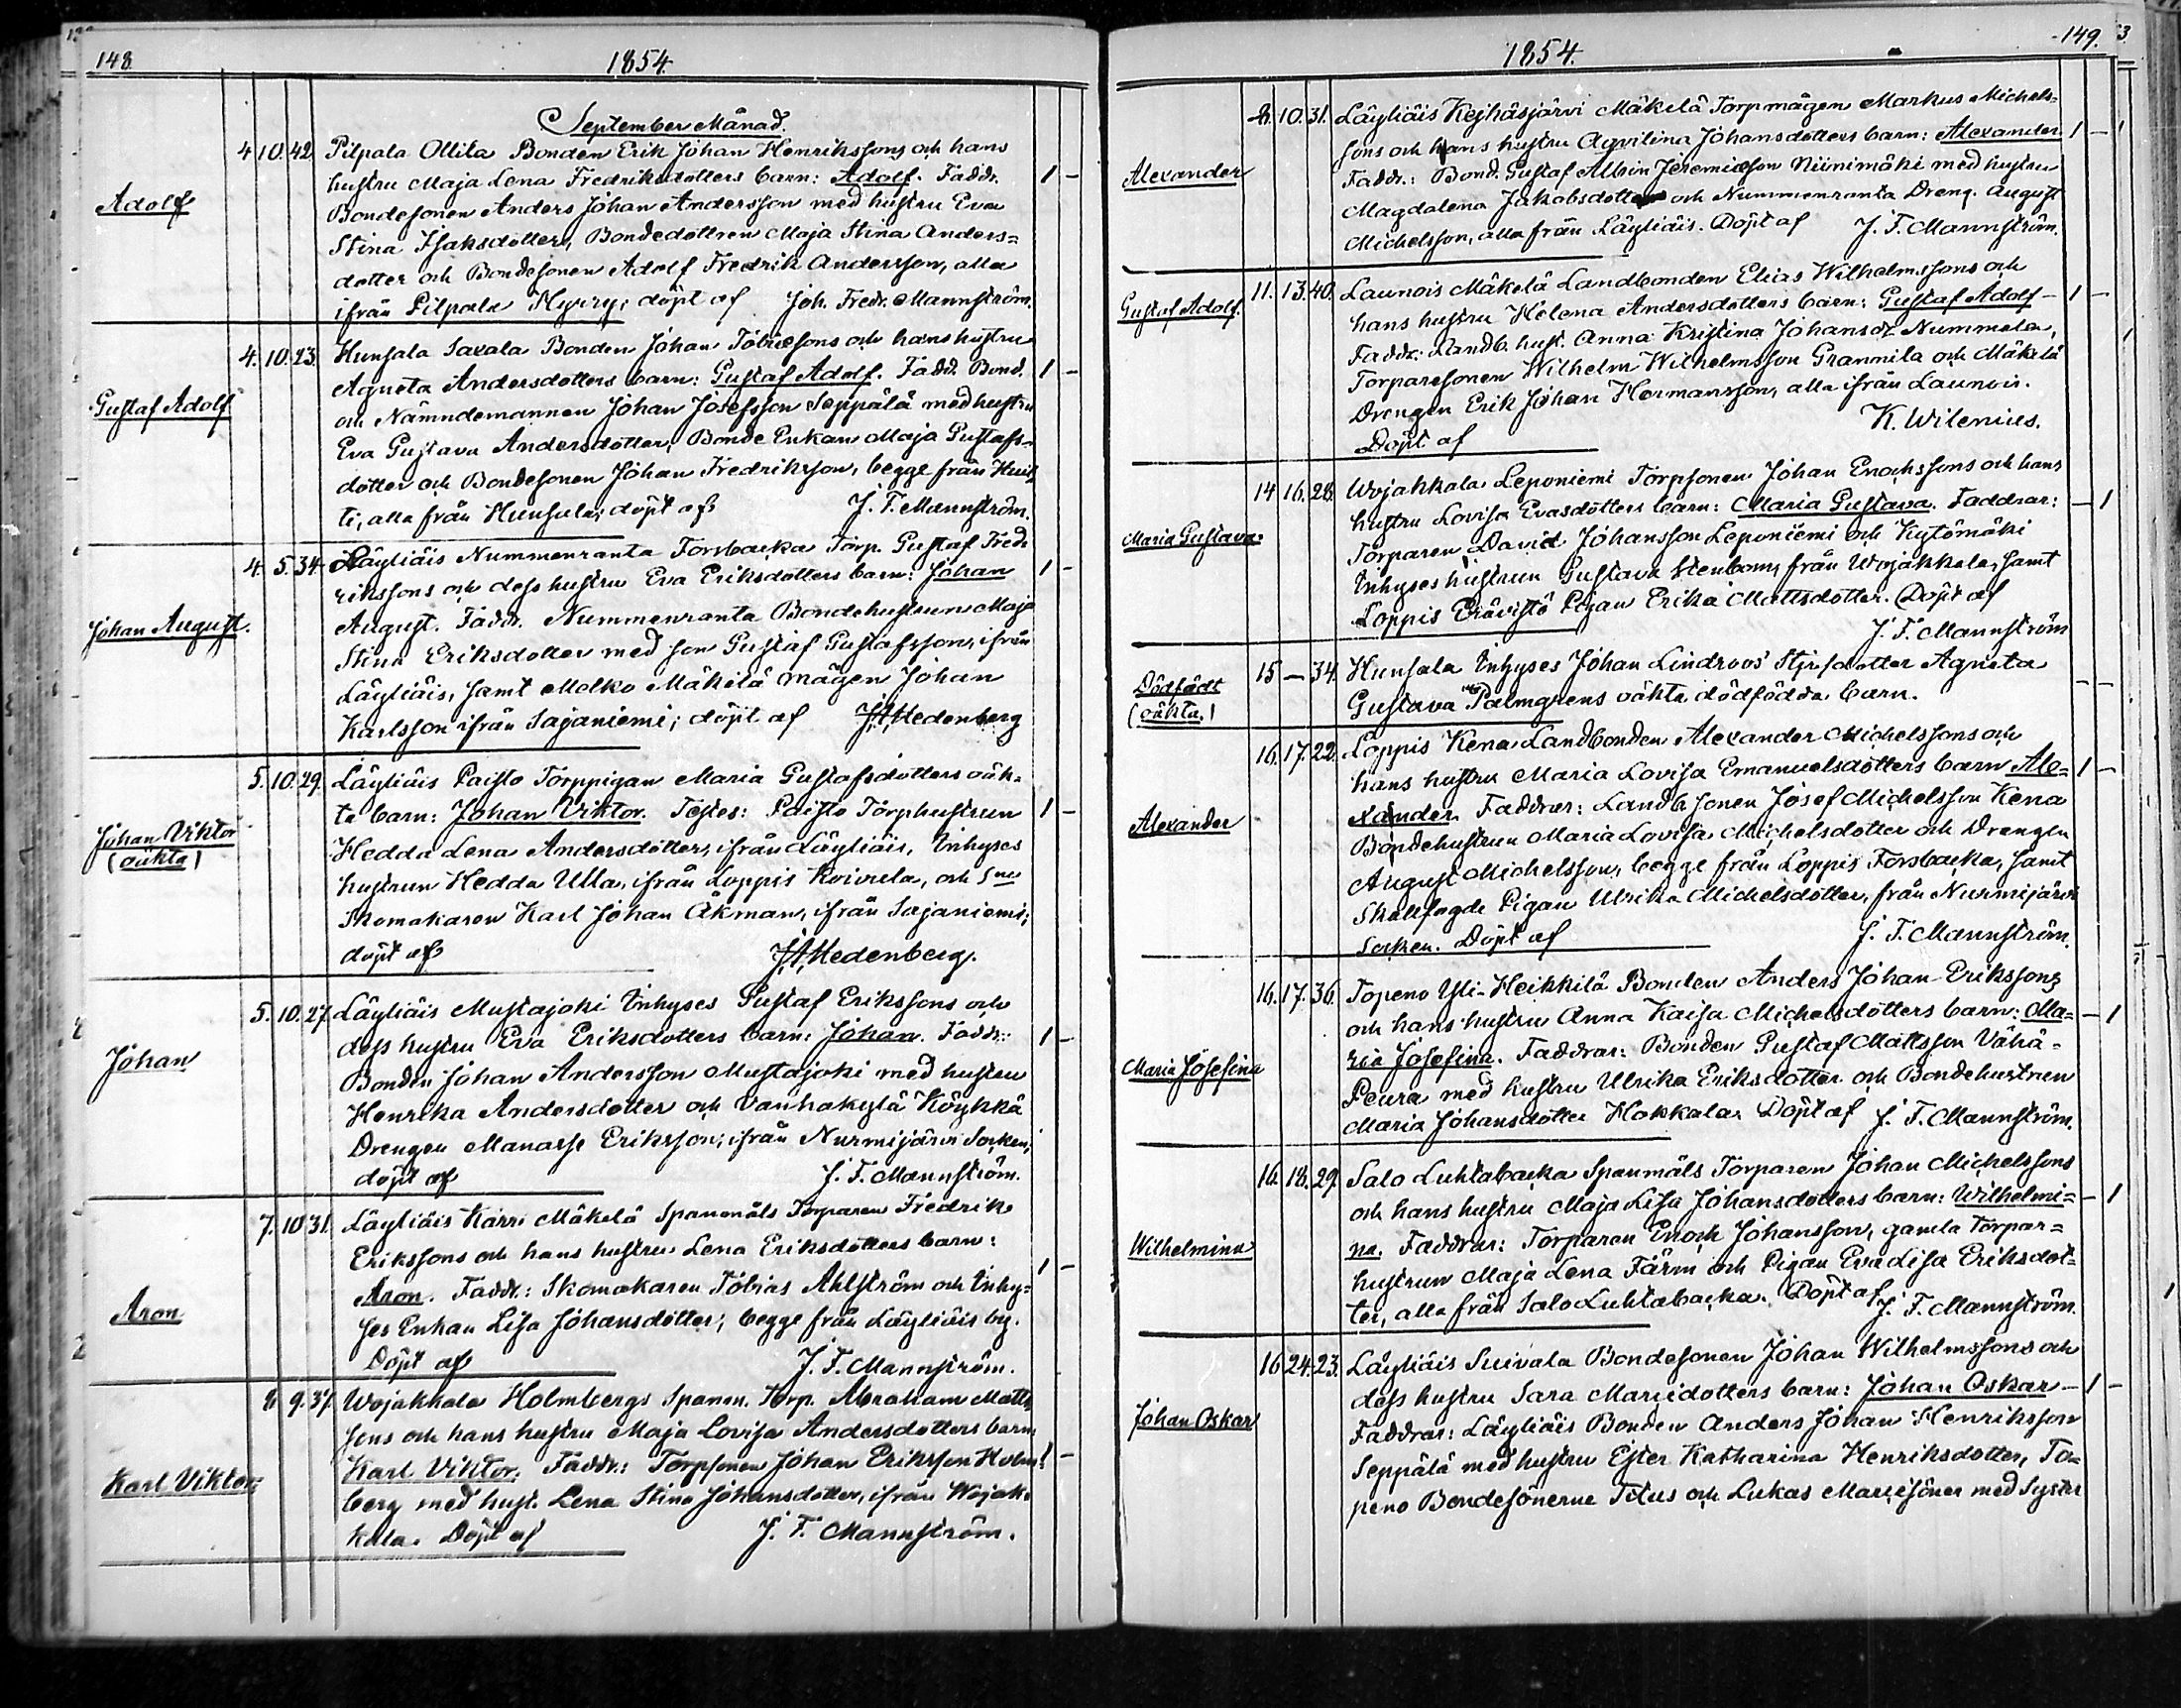 148
1854.
September Månad.
Adolf
4 10. 42 Pilpala Ollila Bonden Erik Johan Henrikssons och hans
hustru Maja Lena Fredriksdotters barn: Adolf. Faddr. 1 -
Bondesonen Anders Johan Andersson med hustru Eva
Stina Isaksdotter, Bondedottren Maja Stina Anders=
dotter och Bondesonen Adolf Fredrik Andersson, alla
ifrån Pilpala Nyyry; döpt af Joh. Fredr. Mannström.
Gustaf Adolf
4. 10. 23. Hunsala Saxala Bonden Johan Tobiæsons och hans hustru
Agneta Andersdotters barn: Gustaf Adolf. Fadd. Bond. 1 -
och Nämndemannen Johan Josefsson Seppälä med hustru
Eva Gustava Andersdotter, Bonde Enkan Maja Gustafs=
dotter och Bondesonen Johan Fredriksson, begge från
ti, alla från Hunsala; döpt af J. F. Mannström.
Johan August.
4. 5. 34 Läyliäis Nummenranta Forsbacka Torp. Gustaf Fred=
rikssons och dess hustru Eva Eriksdotters barn: Johan 1 -
August. Faddr. Nummenranta Bondehustrun Maja
Stina Eriksdotter med son Gustaf Gustafsson, ifrån
Läyliäis, samt Melko Mäkilä mågen Johan
Karlsson ifrån Sajaniemi; döpt af Hedenberg
Johan Viktor
(oäkta)
5. 10. 29. Läyliäis Paisto Torppigan Maria Gustafsdotters oäk=
ta barn: Johan Viktor. Testes: Paisto Torphustrun 1 -
Hedda Lena Andersdotter, ifrån Läyliäis, Inhyses
hustrun Hedda Ulla, ifrån Loppis Koivula, och
Skomakaren Karl Johan Åkman, ifrån Sajaniemi;
döpt af Hedenberg.
Johan
5. 10. 27. Läyliäis Mustajoki Inhyses Gustaf Erikssons och
dess hustru Eva Eriksdotters barn: Johan. Faddr.: 1 -
Bonden Johan Andersson Mustajoki med hustru
Henrika Andersdotter och Vanhakylä Köykkä
Drengen Manasse Eriksson, ifrån Nurmijärvi Socken;
döpt af J. F. Mannström.
Aron
7. 10 31. Läyliäis Karri Mäkelä Spanmåls Torparen Fredrik
Erikssons och hans hustru Lena Eriksdotters barn:
Aron. Faddr.: Skomakaren Tobias Ahlström och Inhy= 1 -
ses Enkan Lisa Johansdotter; begge från Läyliäis by.
Döpt af J. F. Mannström.
Karl Viktor
8. 9. 37. Wojakkala Holmbergs Spanm. Torp. Abraham Matts
sons och hans hustru Maja Lovisa Andersdotters barn
Karl Viktor. Faddr.: Torpsonen Johan Eriksson Holm= 1 -
berg med hust. Lena Stina Johansdotter, ifrån Wojak=
kala. Döpt af J. F. Mannström.
149.
1854.
Alexander
8. 10. 31. Läyliäis Keihäsjärvi Mäkelä Torpmågen Markus Michels=
sons och hans hustru Aqvilina Johansdotters barn: Alexander 1 -
Faddr.: Bond. Gustaf Albin Jeremiæson Niinimäki med hustru
Magdalena Jakobsdotter och Nummenranta Dreng. August
Michelsson, alla från Läyliäis. Döpt af J. F. Mannström.
Gustaf Adolf.
11. 13. 40. Launois Mäkelä Landbonden Elias Wilhelmssons och
hans hustru Helena Andersdotters barn: Gustaf Adolf - 1 -
Faddr: Landb. hust. Anna Kristina Johansdr Nummela,
Torparesonen Wilhelm Wilhelmsson Grannila och Mäkelä
Drengen Erik Johan Hermansson, alla ifrån Launois.
Döpt af K. Wilenius.
Maria Gustava
14 16. 28. Wojakkala Leponiemi Torpsonen Johan Enochssons och hans
hustru Lovisa Evasdotters barn: Maria Gustava. Faddrar: - 1
Torparen David Johansson Leponiemi och Kytömäki
Inhyses hustrun Gustava Stenbom, från Wojakkala, samt
Loppis Erävistö Pigan Erika Mattsdotter. Döpt af
J. F. Mannström
Dödfödt
(oäkta.)
15 - 34. Hunsala Inhyses Johan Lindroos' Styfdotter Agneta
Gustava Palmgrens oäkta dödfödda barn. - -
Alexander
16. 17. 22. Loppis Kena Landbonden Alexander Michelssons och
hans hustru Maria Lovisa Emanuelsdotters barn Ale= 1 -
xander. Faddrar: Landb. sonen Josef Michelsson Kena
Bondehustrun Maria Lovisa Michelsdotter och Drengen
August Michelsson, begge från Loppis Forsbacka, samt
Skallfogde Pigan Ulrika Michelsdotter, från Nurmijärvi
Socken. Döpt af J. F. Mannström.
Maria Josefina
16. 17. 36. Topeno Yli-Heikkilä Bonden Anders Johan Erikssons
och hans hustru Anna Kaisa Michelsdotters barn: Ma= - 1
ria Josefina. Faddrar: Bonden Gustaf Mattsson Vähä-
Peura med hustru Ulrika Eriksdotter och Bondehustrun
Maria Johansdotter Hokkala. Döpt af J. F. Mannström.
Wilhelmina
16. 18. 29. Salo Luhtabacka Spanmåls Torparen Johan Michelssons
och hans hustru Maja Lisa Johansdotters barn: Wilhelmi= - 1
na. Faddrar: Torparen Enoch Johansson, gamla torpar=
hustrun Maja Lena Färm och Pigan Eva Lisa Eriksdot=
ter, alla från Salo Luhtabacka. Döpt af J. F. Mannström.
Johan Oskar
16 24. 23. Läyliäis Suivala Bondesonen Johan Wilhelmssons och
dess hustru Sara Mariædotters barn: Johan Oskar - 1 -
Faddrar: Läyliäis Bonden Anders Johan Henriksson
Seppälä med hustru Ester Katharina Henriksdotter, To=
peno Bondesönerne Titus och Lukas Mariæsöner med Syster